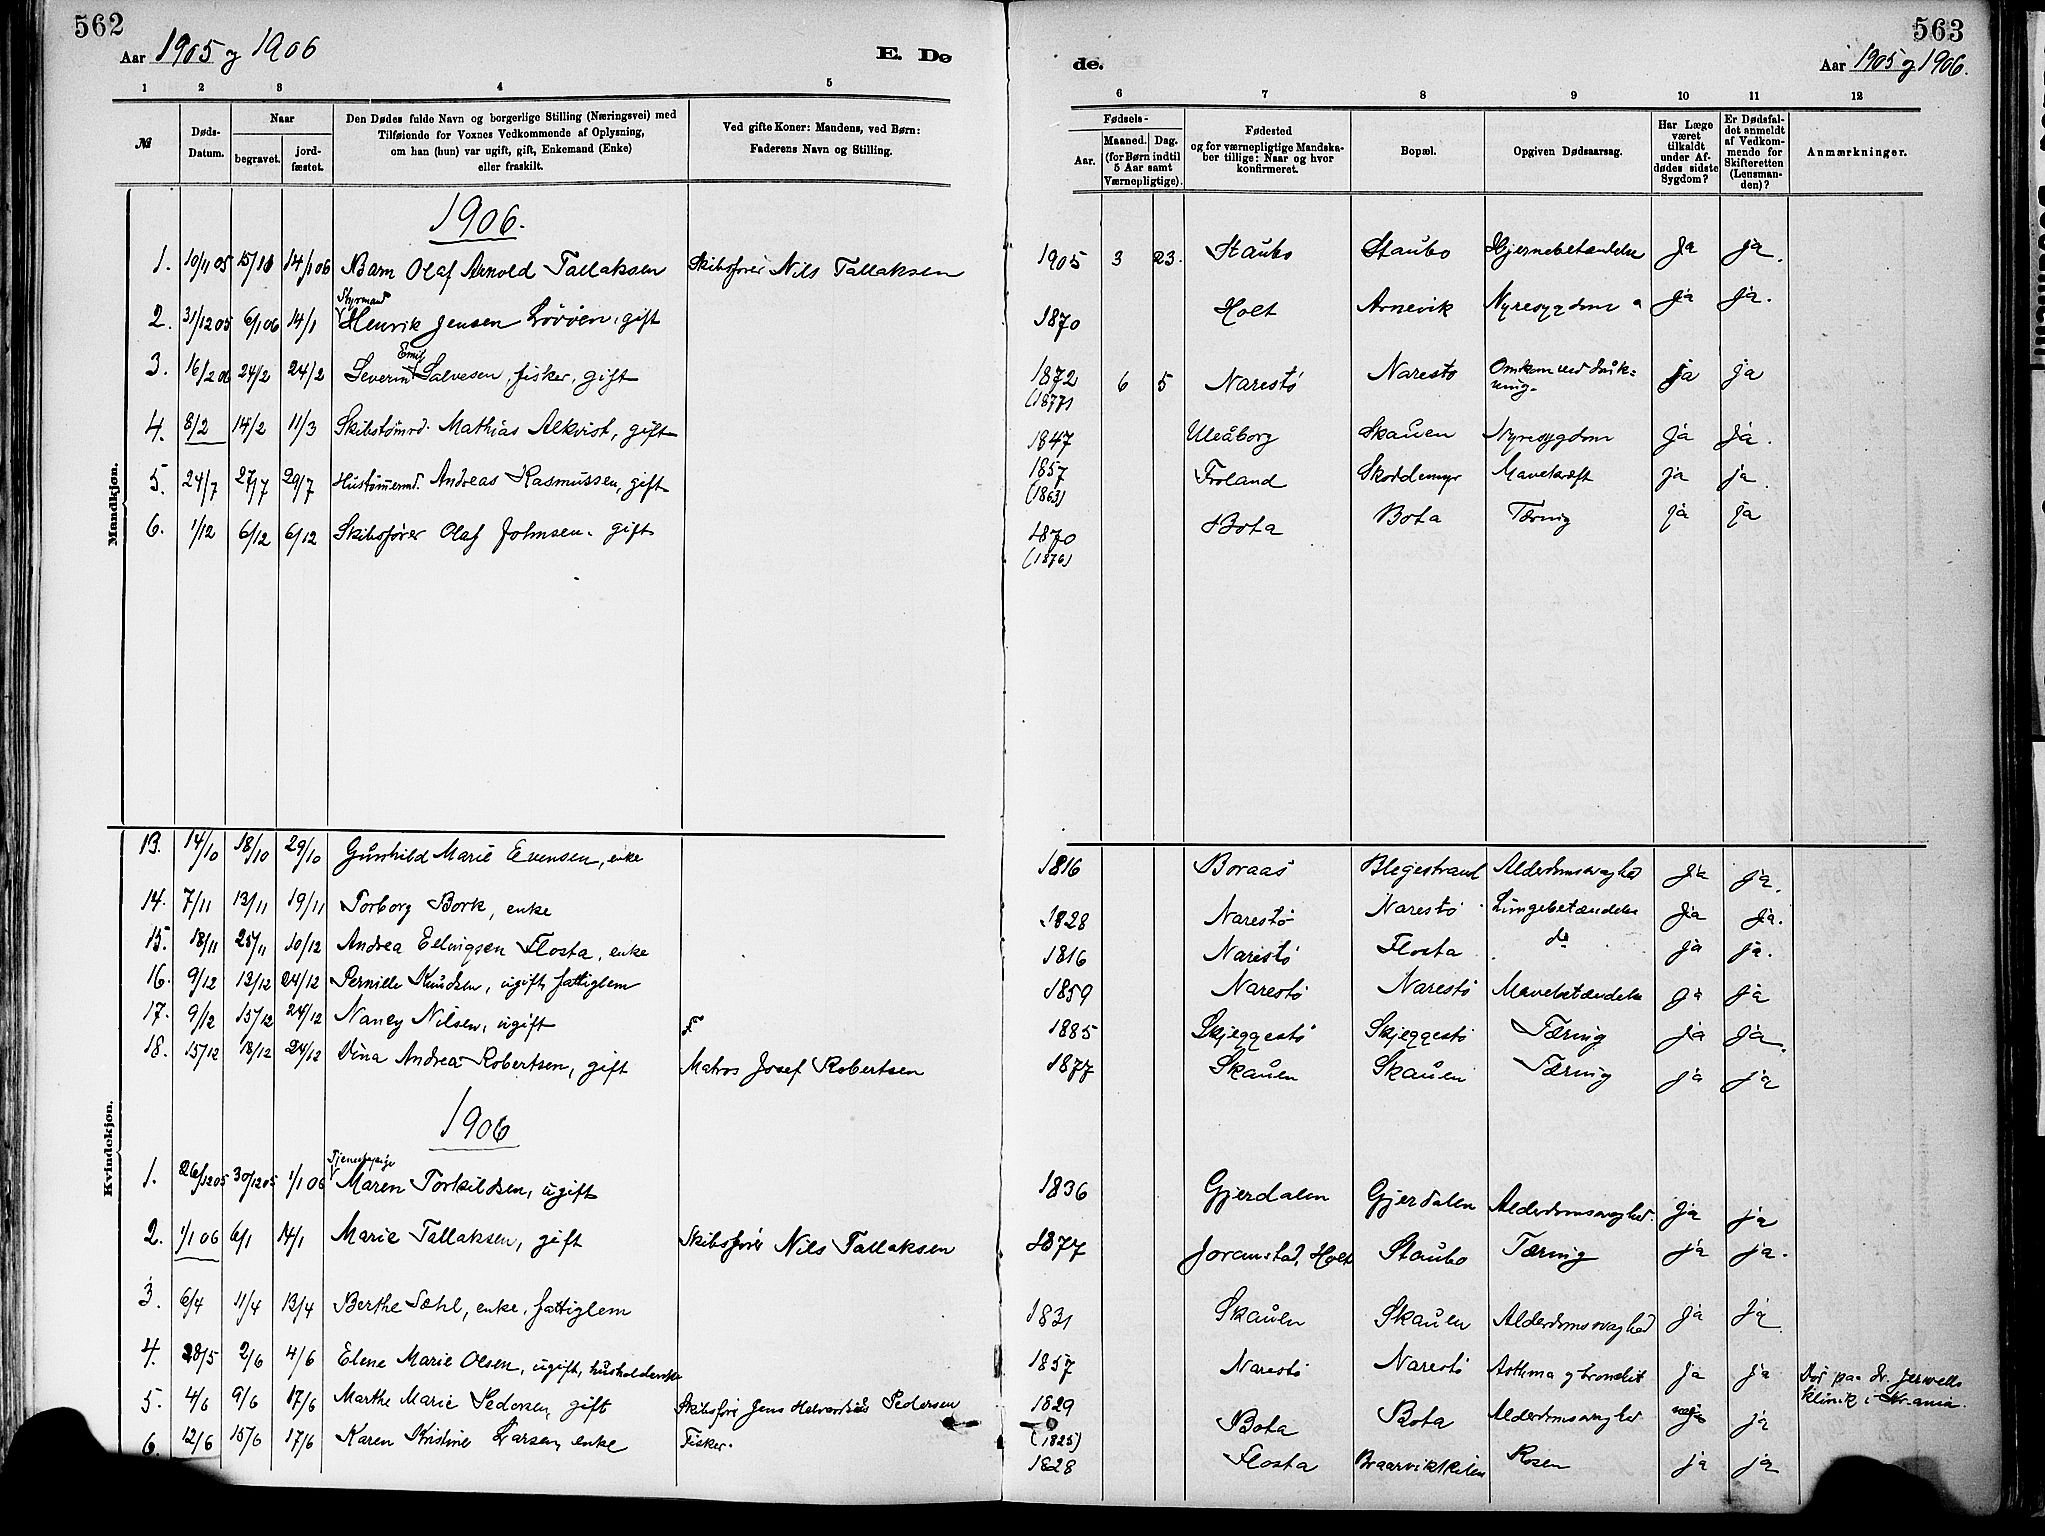 562
Aar 1905 og 1906
E. Dø
de.
563
Aar 1905 og 1906.
1 2 3 4 5 6 7 8 9 10 11 12
№
Døds-
Datum.
Naar
begravet.
jord-
fæstet.
Den Dødes fulde Navn og borgerlige Stilling (Næringsvei) med
Tilføiende for Voxnes Vedkommende af Oplysning,
om han (hun) var ugift, gift, Enkemand (Enke)
eller fraskilt.
Ved gifte Koner: Mandens, ved Børn:
Faderens Navn og Stilling.
Fødsels-
Aar.
Maaned. Dag.
(for Børn indtil
5 Aar samt
Værnepligtige).
Fødested
og for værnepligtige Mandska-
ber tillige: Naar og hvor
konfirmeret.
Bopæl.
Opgiven Dødsaarsag.
Har Læge
været
tilkaldt
under Af-
dødes sidste
Sygdom?
Er Dødsfal-
det anmeldt
af Vedkom-
mende for
Skifteretten
(Lensman-
den)?
Anmærkninger.
Mandkjøn.
1906.
1. 10/11 05 15/11 14/1 06 Barn Olaf Arnold Tallaksen Skibsfører Nils Tallaksen 1905 3 23. Staubo Staubo Hjernebetændelse Ja ja.
Styrmand
2. 31/12 05 6/1 06 14/1 Henrik Jensen gift 1870 Holt Arnevik Nyresygdom Ja Ja.
Emil
3. 16/2 06 24/2 24/2 Severin Salvesen, fisker, gift 1872 6 5 Narestö Narestö Omkom ved druk- ja ja
(1877) ning.
4. 8/2 14/2 11/3 Skibstömrd. Mathias Alkvist, gift 1847 Uleåborg Skauen Nyresygdom Ja Ja.
5. 24/7 27/7 29/7 Hustömmermd. Andreas Rasmussen, gift 1857 Froland Skoddemyr Mavekræft ja ja
(1863)
6. 1/12 6/12 6/12 Skibsfører Olaf Johnsen. gift 1870 Bota Bota Tæring ja ja
(1876)
Kvindekjøn.
13. 14/10 18/10 29/10 Gunhild Marie Evensen, enke 1816 Boraas Blegestrand Alderdomssvaghed Ja ja.
14. 7/11 13/11 19/11 Torborg Bork, enke 1828 Narestö Narestö Lungebetændelse Ja Ja.
15. 18/11 25/11 10/12 Andrea Ellingsen Flosta, enke 1816 Narestö Flosta do ja ja.
16. 9/12 13/12 24/12 Pernille Knudsen, ugift, fattiglem 1859 Narestö Narestö Mavebetændelse ja ja
17. 9/12 15/12 24/12 Nancy Nilsen, ugift F 1885 Skjeggestö Skjeggestö Tæring ja Ja.
18. 15/12 18/12 24/12 Vina Andrea Robertsen, gift Matros Josef Robertsen 1877 Skauen Skauen Tæring ja ja
1906
Tjenestepige
1. 26/12 05 30/12 05 1/1 06 Maren Torkildsen, ugift 1836 Gjerdalen Gjerdalen Alderdomssvaghed. Ja ja
2. 1/1 06 6/1 14/1 Marie Tallaksen, gift Skibsfører Nils Tallaksen 1877 Joranstad, Holt Staubo Tæring ja ja.
3. 6/4 11/4 13/4 Berthe Sæhl, enke, fattiglem 1831 Skauen Skauen Alderdomssvaghed Ja Ja
4. 28/5 2/6 4/6 Elene Marie Olsen, ugift, husholderske 1857 Narestö Narestö Asthma og bronchit Ja ja Död paa dr. Jervells
klinik i Kr.ania.
5. 4/6 9/6 17/6 Marthe Marie Pedersen, gift Skibsfører Jens Pedersen 1829 Bota Bota Alderdomssvaghed nei ja
(1825)
6. 12/6 15/6 17/6 Karen Kristine Larsen, enke Fisker. 1828 Flosta Braarvikkilen Rosen ja ja